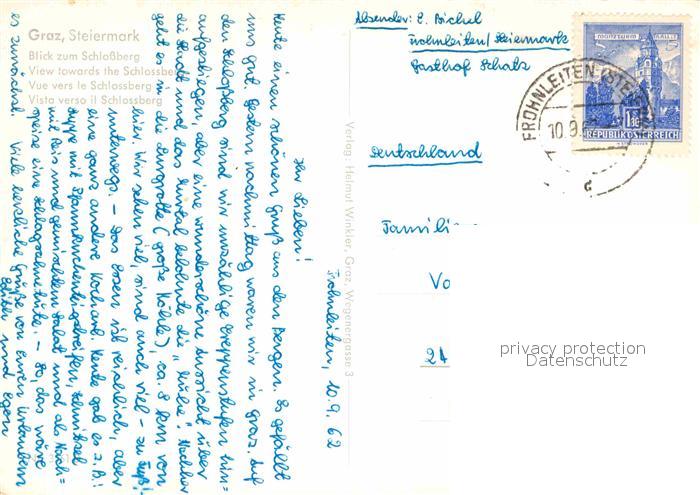 Graz, Steiermark
Blick zum Schloßberg
View towards the Schlossberg
Vue vers le Schlossberg
Vista verso il Schlossberg
Frohnleiten, 10.9.62
Ihr Lieben!
Heute einen schönen Gruß aus den Bergen. Es gefällt
uns gut. Gestern nachmittag waren wir in Graz. Auf
den Schloßberg sind wir unzählige Treppenstufen hin-
aufgestiegen, aber eine wunderschöne Aussicht über
die Stadt und das Murtal belohnte die „Mühe“. Nachher
geht es in die Lurgrotte (große Höhle), ca. 8 km von
hier. Wir sehen viel, sind auch viel - zu Fuß!
unterwegs. - Das Essen ist reichlich, aber
eine ganz andere Kochart. Heute gab es z.B.:
Suppe mit Pfannkuchenteigstreifen, Schnitzel
mit Reis und gemischtem Salat und als Nach-
speise eine Schlagsahnetüte. - So, das wäre
es zunächst. Viele herzliche Grüße von Euren Urlaubern
Edith und Egon
Verlag: Helmut Winkler, Graz, Wegenergasse 3
Absender: E. Bichel
Frohnleiten/Steiermark
Gasthof Schatz
Deutschland
Famili
Vo
24
MÜNZTURM HALL i. T.
1.80
REPUBLIK ÖSTERREICH
FROHNLEITEN
10.9.
d
privacy protection
Datenschutz